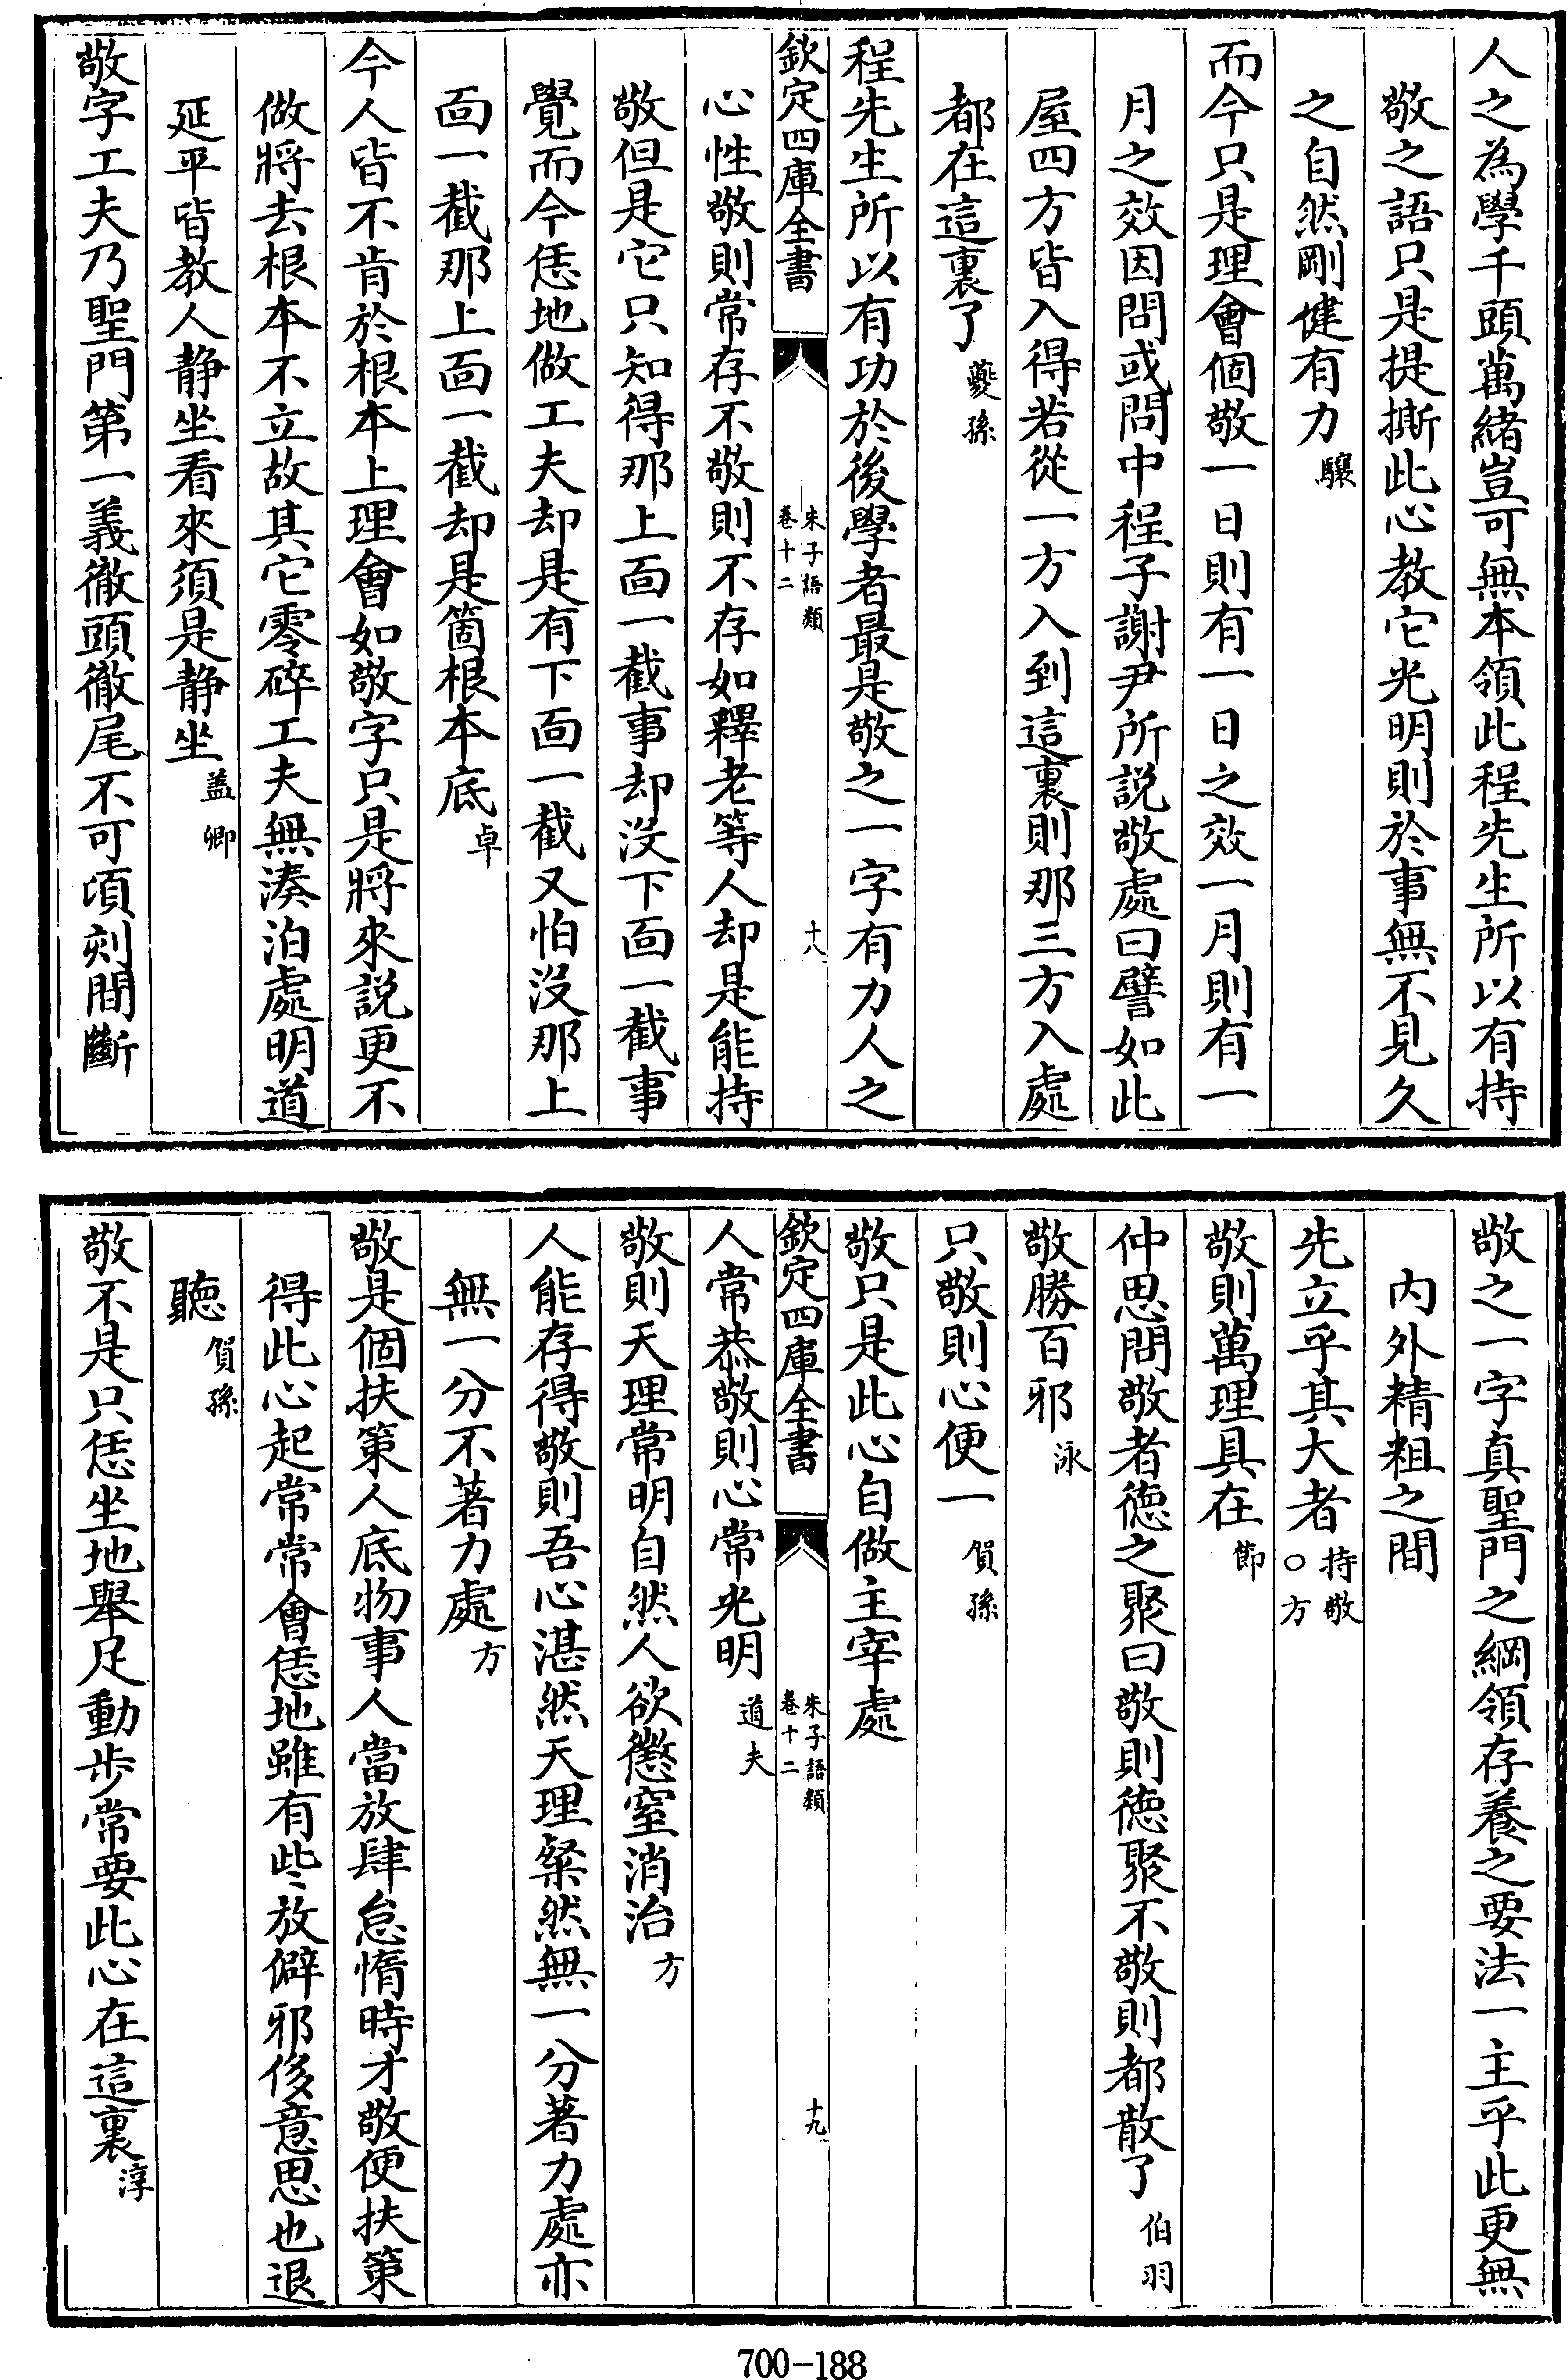 人之為學千頭萬緒豈可無本領此程先生所以有持
敬之語只是提撕此心教它光明則於事無不見久
之自然剛健有力驤
而今只是理會個敬一日則有一日之效一月則有一
月之效因問或問中程子謝尹所説敬處曰譬如此
屋四方皆入得若從一方入到這裏則那三方入處
都在這裏了夔孫
程先生所以有功於後學者最是敬之一字有力人之
欽定四庫全書
朱子語類
卷十二
十八
心性敬則常存不敬則不存如釋老等人却是能持
敬但是它只知得那上面一截事却没下面一截事
覺而今恁地做工夫却是有下面一截又怕没那上
面一截那上面一截却是箇根本底卓
今人皆不肯於根本上理會如敬字只是將來説更不
做將去根本不立故其它零碎工夫無湊泊處明道
延平皆教人静坐看來須是静坐盖卿
敬字工夫乃聖門第一義徹頭徹尾不可頃刻間斷
敬之一字真聖門之綱領存養之要法一主乎此更無
内外精粗之間
先立乎其大者持敬
○方
敬則萬理具在節
仲思問敬者徳之聚曰敬則徳聚不敬則都散了伯羽
敬勝百邪泳
只敬則心便一賀孫
敬只是此心自做主宰處
欽定四庫全書
朱子語類
卷十二
十九
人常恭敬則心常光明道夫
敬則天理常明自然人欲懲窒消治方
人能存得敬則吾心湛然天理粲然無一分著力處亦
無一分不著力處方
敬是個扶策人底物事人當放肆怠惰時才敬便扶策
得此心起常常會恁地雖有些放僻邪侈意思也退
聽賀孫
敬不是只恁坐地舉足動步常要此心在這裏淳
700-188